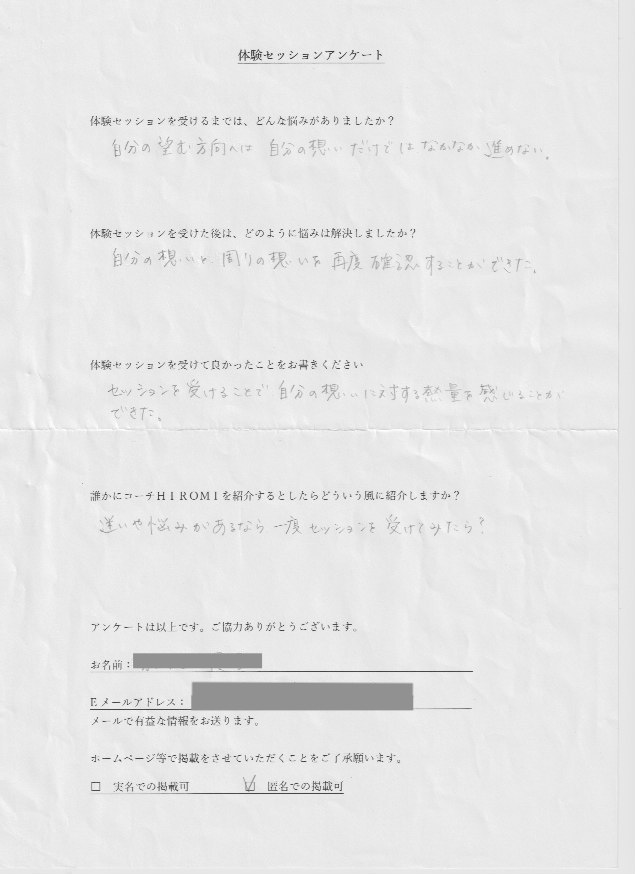 体験セッションアンケート
体験セッションを受けるまでは、どんな悩みがありましたか？
自分の望む方向へは 自分の想いだけでは なかなか 進めない。
体験セッションを受けた後は、どのように悩みは解決しましたか？
自分の想いと、周りの想いを 再度 確認することができた。
体験セッションを受けて良かったことをお書きください
セッションを受けることで 自分の想いに対する熱量を感じることが
できた。
誰かにコーチＨＩＲＯＭＩを紹介するとしたらどういう風に紹介しますか？
迷いや悩みがあるなら、一度 セッションを 受けてみたら？
アンケートは以上です。ご協力ありがとうございます。
お名前：
Ｅメールアドレス：
メールで有益な情報をお送ります。
ホームページ等で掲載をさせていただくことをご了承願います。
□ 実名での掲載可 ☑ 匿名での掲載可